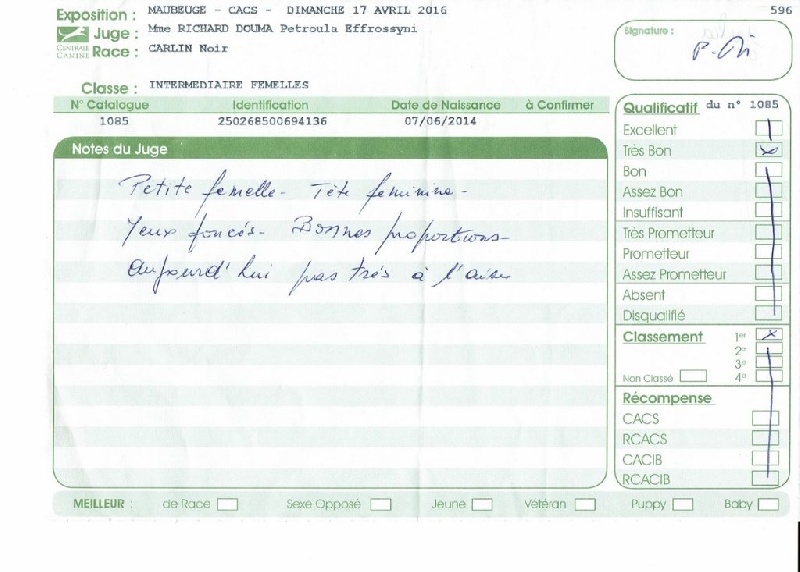 Exposition : MAUBEUGE - CACS - DIMANCHE 17 AVRIL 2016
596
CENTRALE CANINE
Juge : Mme RICHARD DOUMA Petroula Effrossyni
Race : CARLIN Noir
Signature :
Classe : INTERMEDIAIRE FEMELLES
N° Catalogue Identification Date de Naissance à Confirmer
1085 250268500694136 07/06/2014
Notes du Juge
Petite femelle - Tête féminine -
Yeux foncés - Bonnes proportions
Aujourd'hui pas très à l'aise
Qualificatif du n° 1085
Excellent
Très Bon x
Bon
Assez Bon
Insuffisant
Très Prometteur
Prometteur
Assez Prometteur
Absent
Disqualifié
Classement 1er x
2e
3e
Non Classé 4e
Récompense
CACS
RCACS
CACIB
RCACIB
MEILLEUR : de Race Sexe Opposé Jeune Vétéran Puppy Baby